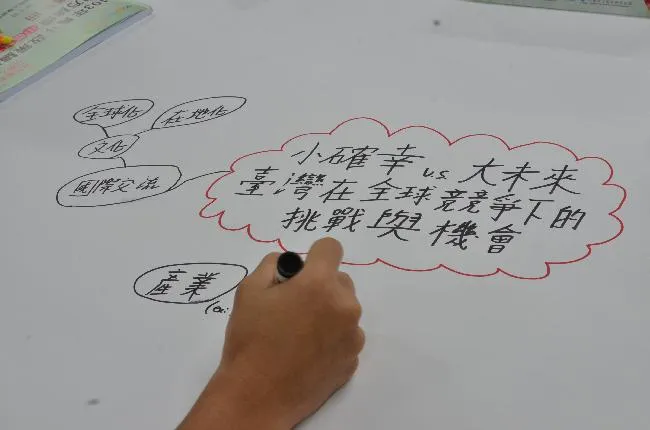 全球化
在地化
文化
國際交流
小確幸 vs 大未來
臺灣在全球競爭下的
挑戰與機會
產業